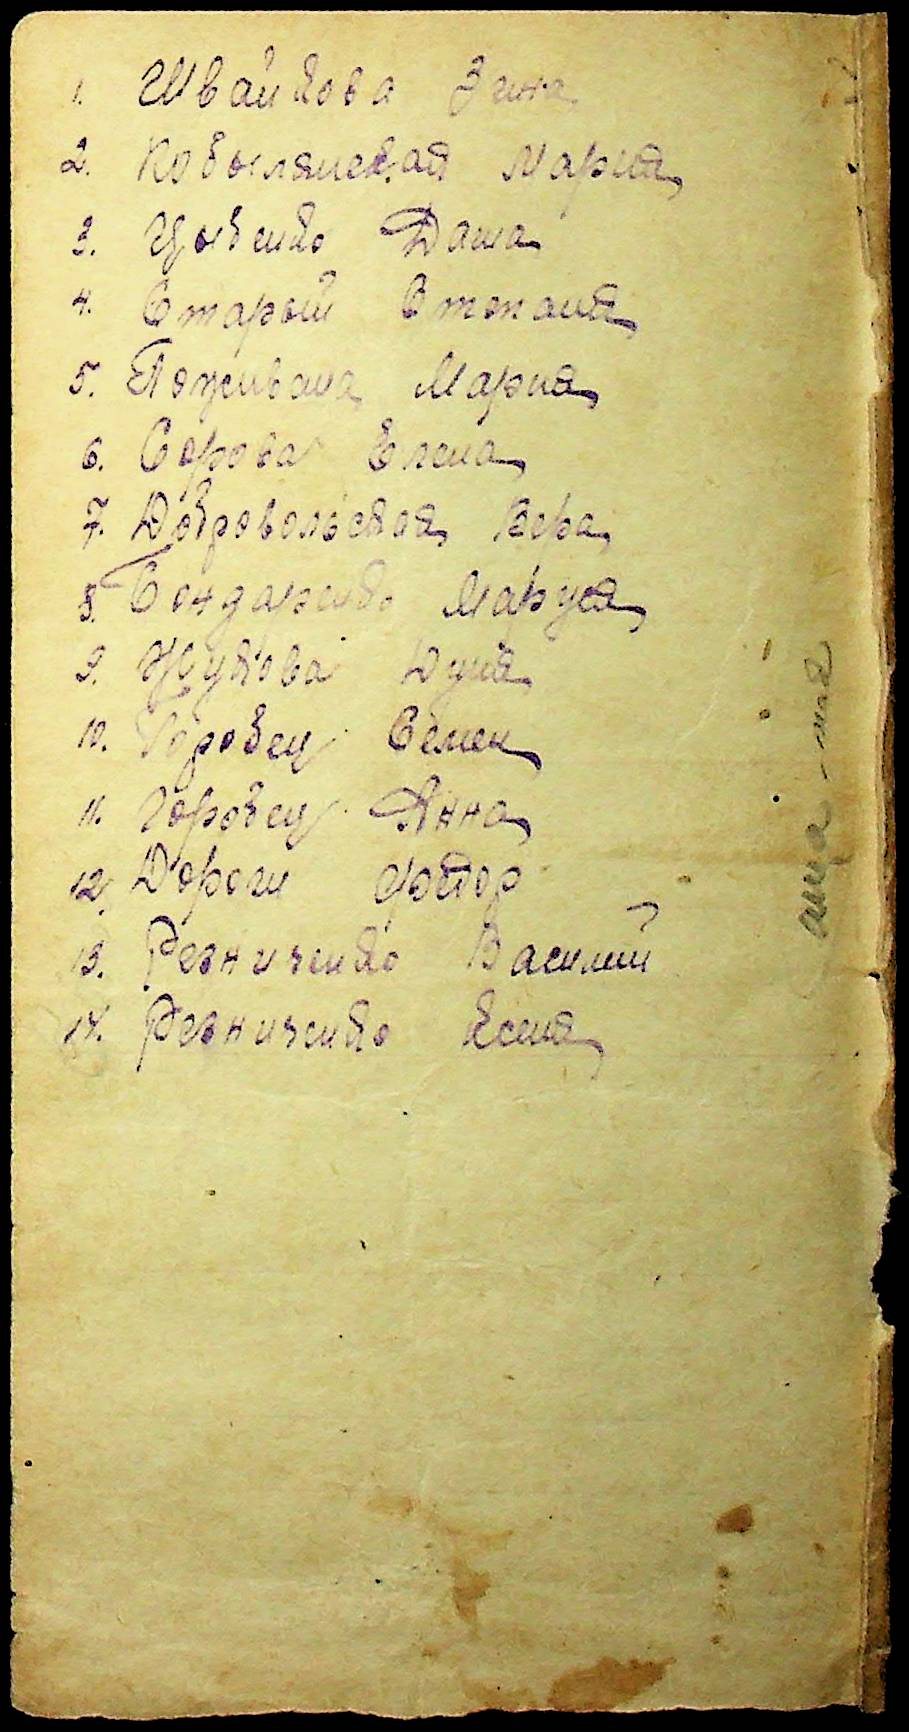 1. Швайкова Зина
2. Кобылянская Мария
3. Цыбенко Даша
4. Старый Степанида
5. Мария
6. Серова Елена
7. Добровольская Вера
8. Бондаренко Маруся
9. Жукова Дуня
10. Горовец Семен
11. Горовец Анна
12. Дороги Федор
13. Резниченко Василий
14. Резниченко Ксеня